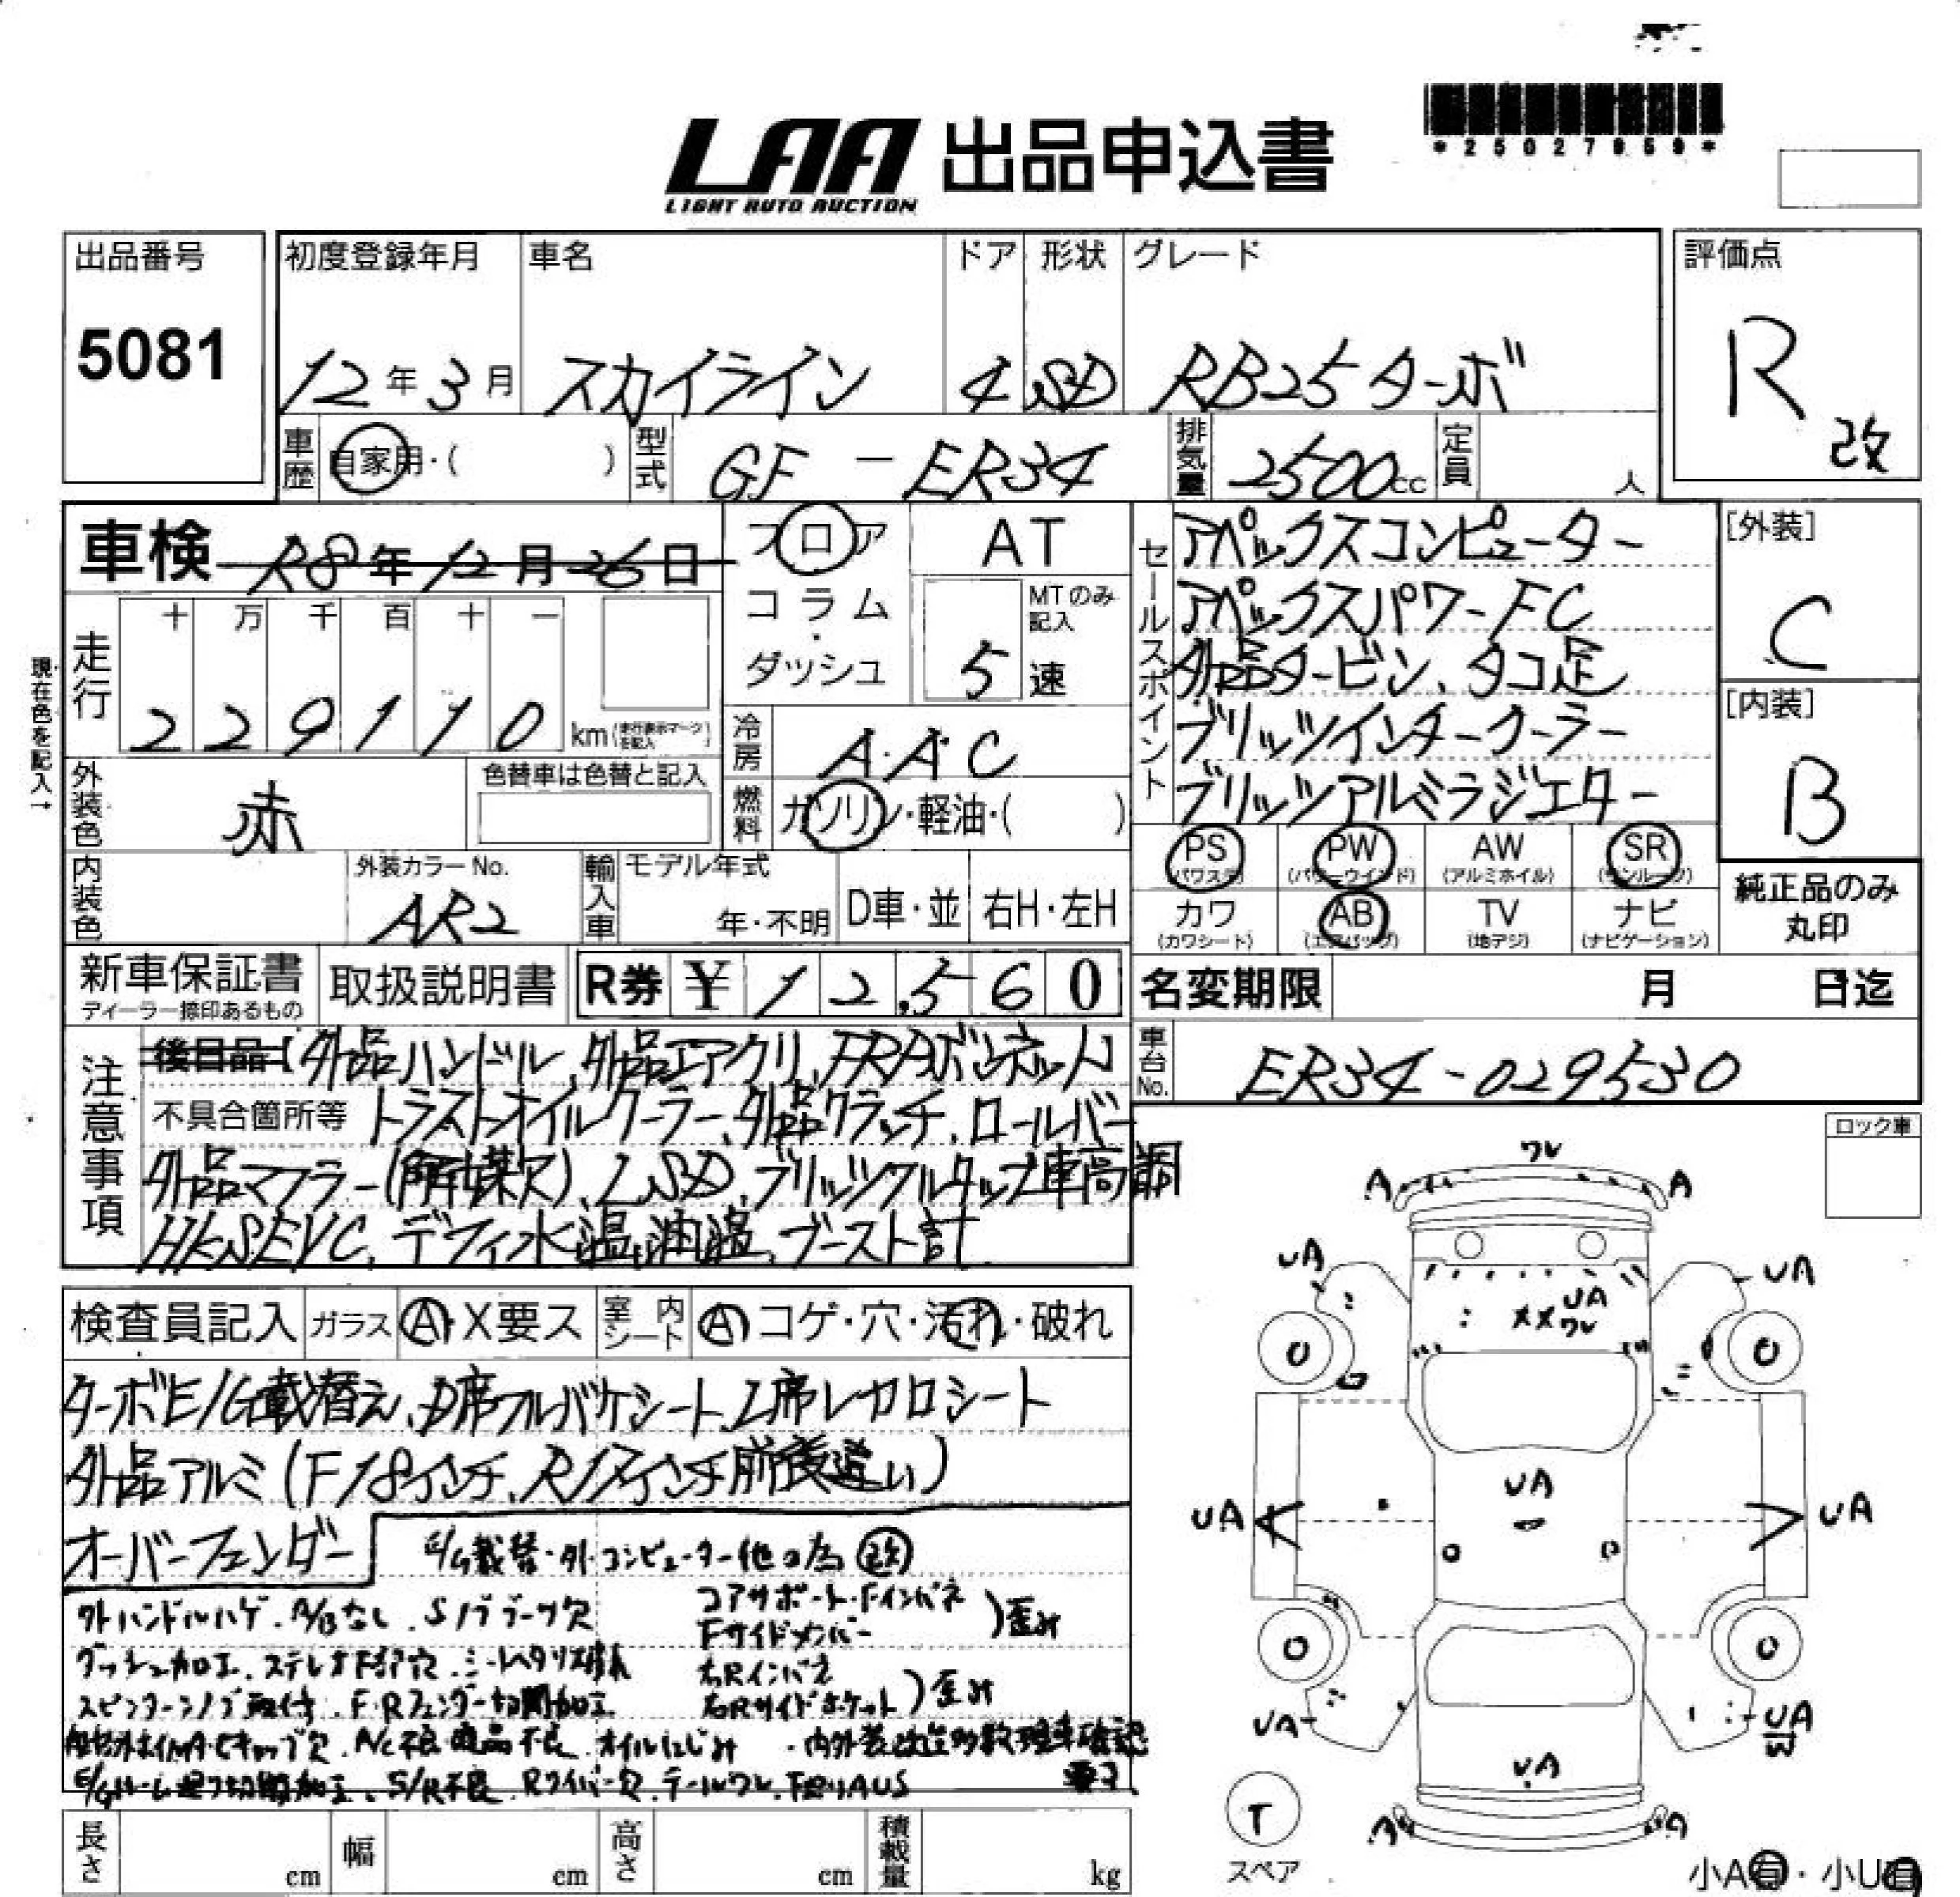 *25027959*
LAA 出品申込書
LIGHT AUTO AUCTION
出品番号
5081
初度登録年月
12年3月
車名
スカイライン
ドア
4
形状
SD
グレード
RB25ターボ
評価点
R
改
車歴 自家用・( )
型式 GF-ER34
排気量 2500cc
定員 人
車検 R8年12月26日
走行
十 万 千 百 十 一
2 2 9 1 1 0 km
(走行表示マークを記入)
現在色を記入→
フロア
コラム
・
ダッシュ
AT
MTのみ記入
5速
冷房 A.A.C
燃料 ガソリン・軽油・( )
外装色 赤
色替車は色替と記入
内装色
外装カラーNo.
AR2
輸入車
モデル年式
年・不明
D車・並
右H・左H
セールスポイント
アペックスコンピューター
アペックスパワーFC
外品タービン、タコ足
ブリッツインタークーラー
ブリッツアルミラジエター
[外装]
C
[内装]
B
PS (パワステ)
PW (パワーウインド)
AW (アルミホイル)
SR (サンルーフ)
カワ (カワシート)
AB (エアバッグ)
TV (地デジ)
ナビ (ナビゲーション)
純正品のみ
丸印
新車保証書
ディーラー捺印あるもの
取扱説明書
R券 ¥12,560
名変期限 月 日迄
車台No. ER34-029530
注意事項
後日品【外品ハンドル、外品エアクリ、FRPボンネット
不具合箇所等 トラストオイルクーラー、外品クラッチ、ロールバー
外品マフラー(触媒欠)、LSD、ブリッツフルタップ車高調
HKSEVC、デフィ水温、油温、ブースト計
ロック車
検査員記入
ガラス A・X要ス
室内シート A・コゲ・穴・汚れ・破れ
ターボE/G載替え、D席フルバケシート、L席レカロシート
外品アルミ(F18インチ、R17インチ前後違い)
オーバーフェンダー
E/G載替・外コンピューター他の為改
外ハンドルハゲ.A/Bなし.Sノブブーツ欠
コアサポート・Fインパネ
Fサイドメンバー
)歪み
ダッシュ加工.ステレオ下部穴.シートヘタリスレ
右Rインパネ
スピンターンノブ取付.F・Rフェンダー切開加工
右Rサイドポケット
)歪み
A/C不良.オイルにじみ
・内外装改造多数現車確認
要す
E/Gルーム廻り切開加工.S/R不良.Rワイパー欠.テールワレ.下廻りAUS
ワレ
A
A
UA
UA
XX UA
ワレ
0
0
UA
UA
UA
0
0
UA
UA
W
UA
A
A
T
スペア
小A有・小U有
長さ cm
幅 cm
高さ cm
積載量 kg